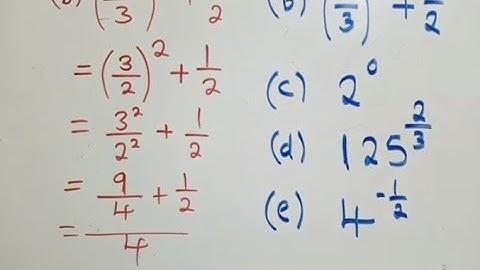 (2/3) + 1/2
= (3/2)^2 + 1/2
= 3^2/2^2 + 1/2
= 9/4 + 1/2
= /4
(b) ( /3) + 1/2
(c) 2^0
(d) 125^(2/3)
(e) 4^(-1/2)